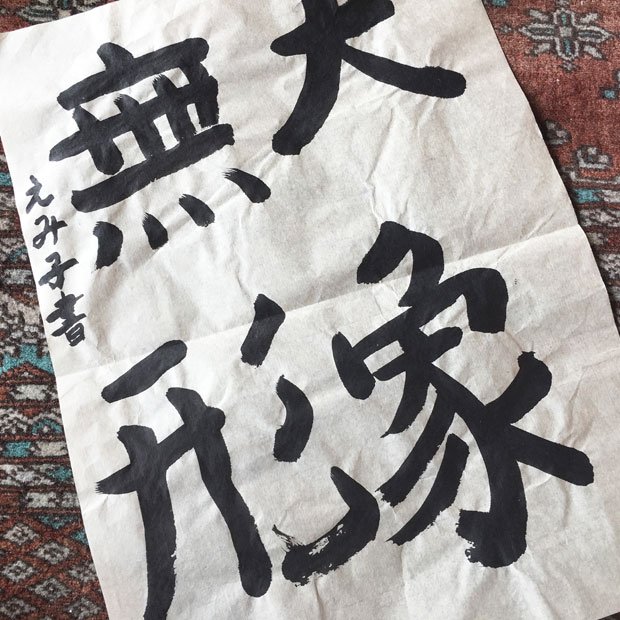 大象
無形
えみ子書